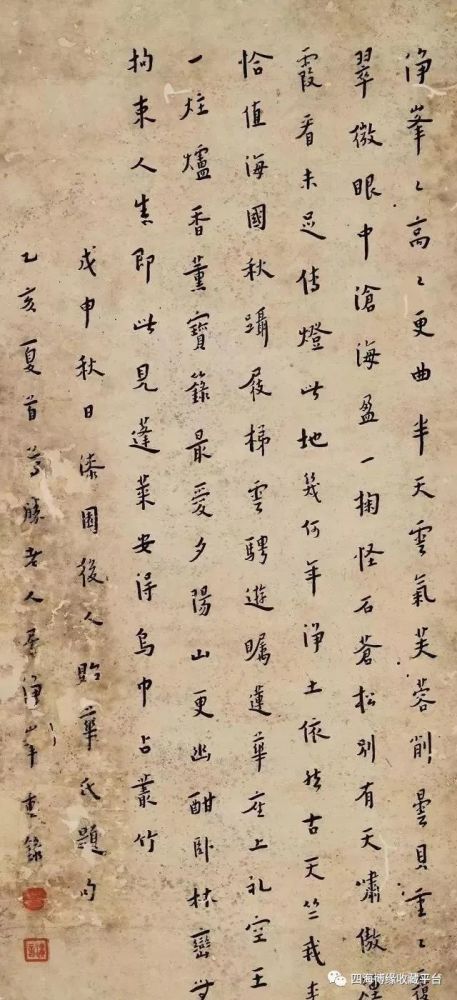 淨峯〻高〻更曲半天雲氣芙蓉削曇貝重〻覆
翠微眼中滄海盈一掬怪石蒼松別有天嘯傲
霞看未足傳燈此地幾何年淨土依然古天竺我來
恰值海國秋躡屐梯雲騁遊矚蓮華座上礼空王
一炷爐香薰寶籙最愛夕陽山更幽酣卧林巒無
拘束人生即此見蓬萊安得烏巾占叢竹
戊申秋日漆園後人貽華氏題句
乙亥夏首尊勝老人居淨峯重錄
四海博缘收藏平台